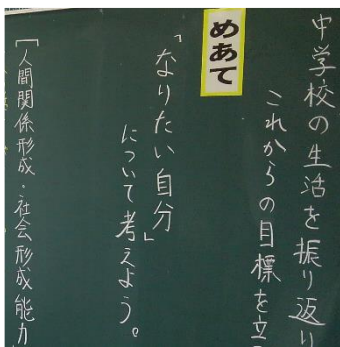 中学校の生活を振り返り
これからの目標を立
めあて
「なりたい自分」
について考えよう。
[人間関係形成・社会形成能力